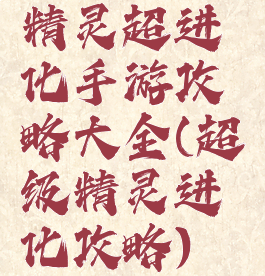 精灵超进
化手游攻
略大全(超
级精灵进
化攻略)